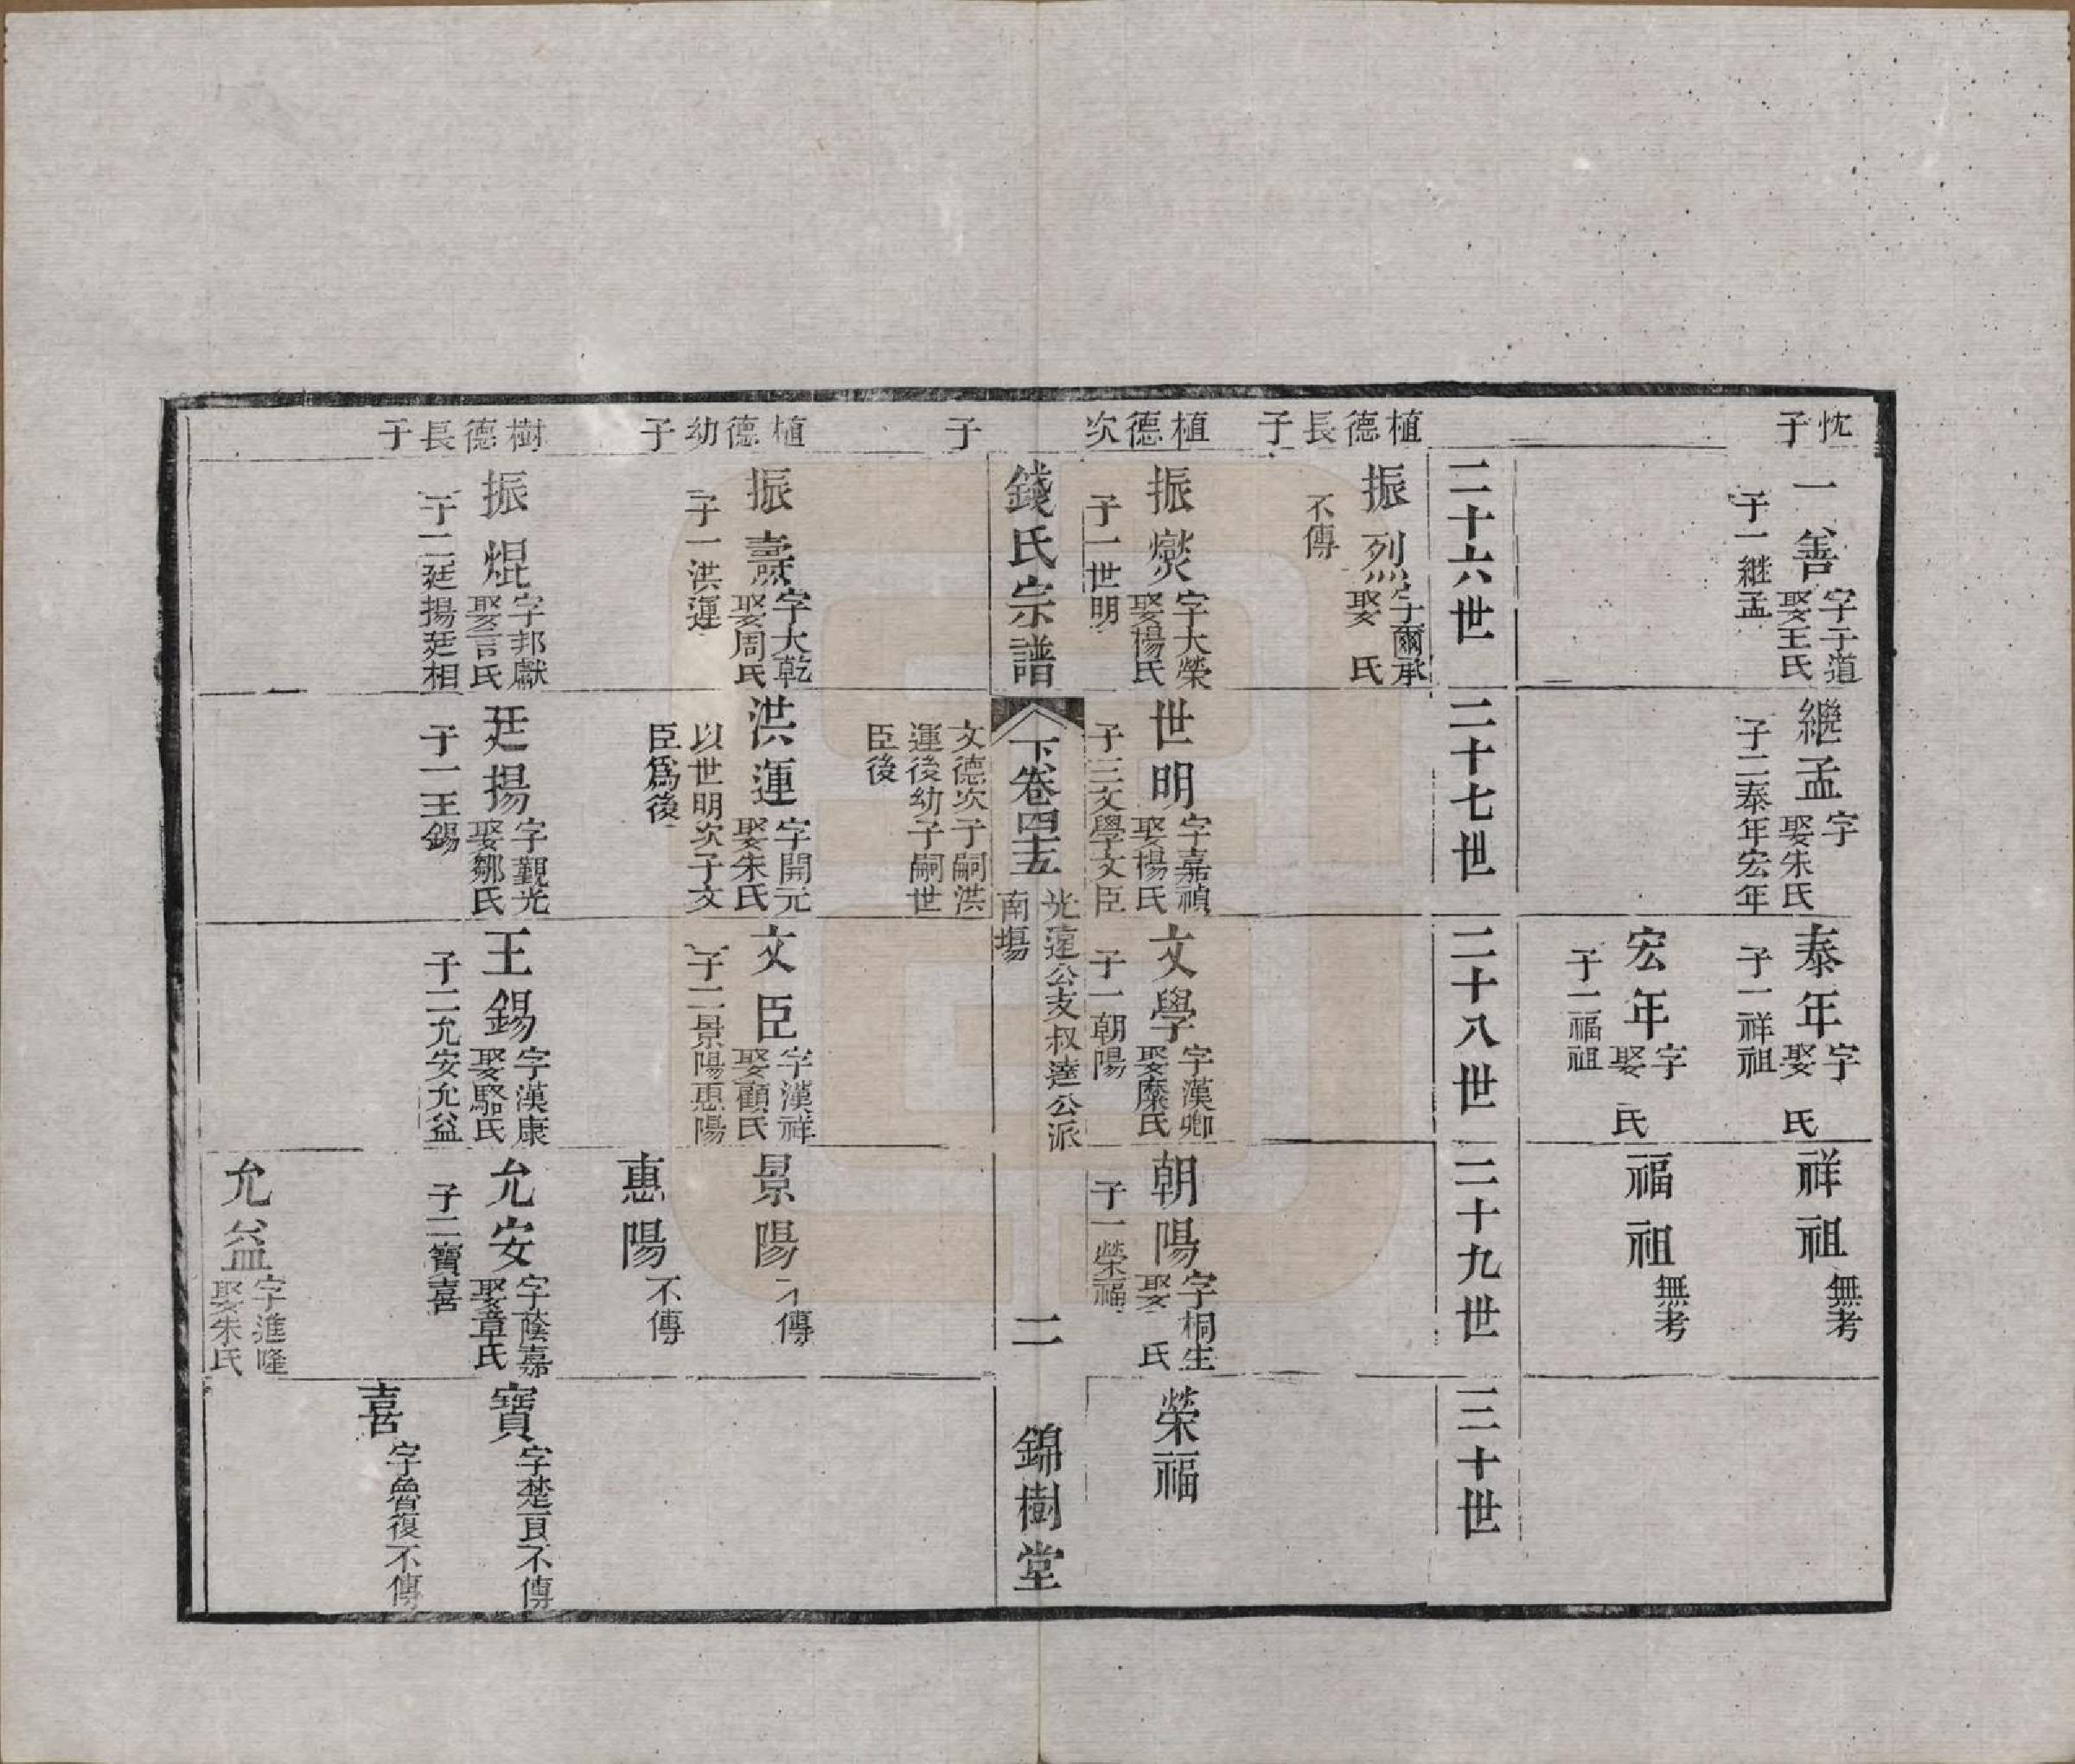 忱子
一善 字子道 娶王氏
子一繼孟
繼孟 字 娶朱氏
子二泰年宏年
泰年 字 娶 氏
子一祥祖
祥祖 無考
宏年 字 娶 氏
子一福祖
福祖 無考
二十六世
二十七世
二十八世
二十九世
三十世
植德長子
振烈 字爾承 娶 氏
不傳
植德次子
振爕 字大榮 娶楊氏
子一世明
世明 字嘉禎 娶楊氏
子三文學文臣
文德次子嗣洪
運後幼子嗣世
臣後
文學 字漢卿 娶糜氏
子一朝陽
朝陽 字桐生 娶 氏
子一榮福
榮福
錢氏宗譜
下卷四五
光遠公支叔達公派
南塲
二
錦樹堂
植德幼子
振燾 字大乾 娶周氏
子一洪運
洪運 字開元 娶朱氏
以世明次子文
臣爲後
文臣 字漢祥 娶顧氏
子二景陽惠陽
景陽 不傳
惠陽 不傳
樹德長子
振焜 字邦獻 娶言氏
子二廷揚廷相
廷揚 字覲光 娶鄒氏
子一王錫
王錫 字漢康 娶駱氏
子二允安允益
允安 字蔭嘉 娶章氏
子二寶喜
寶 字楚頁不傳
喜 字魯復不傳
允益 字進隆 娶朱氏